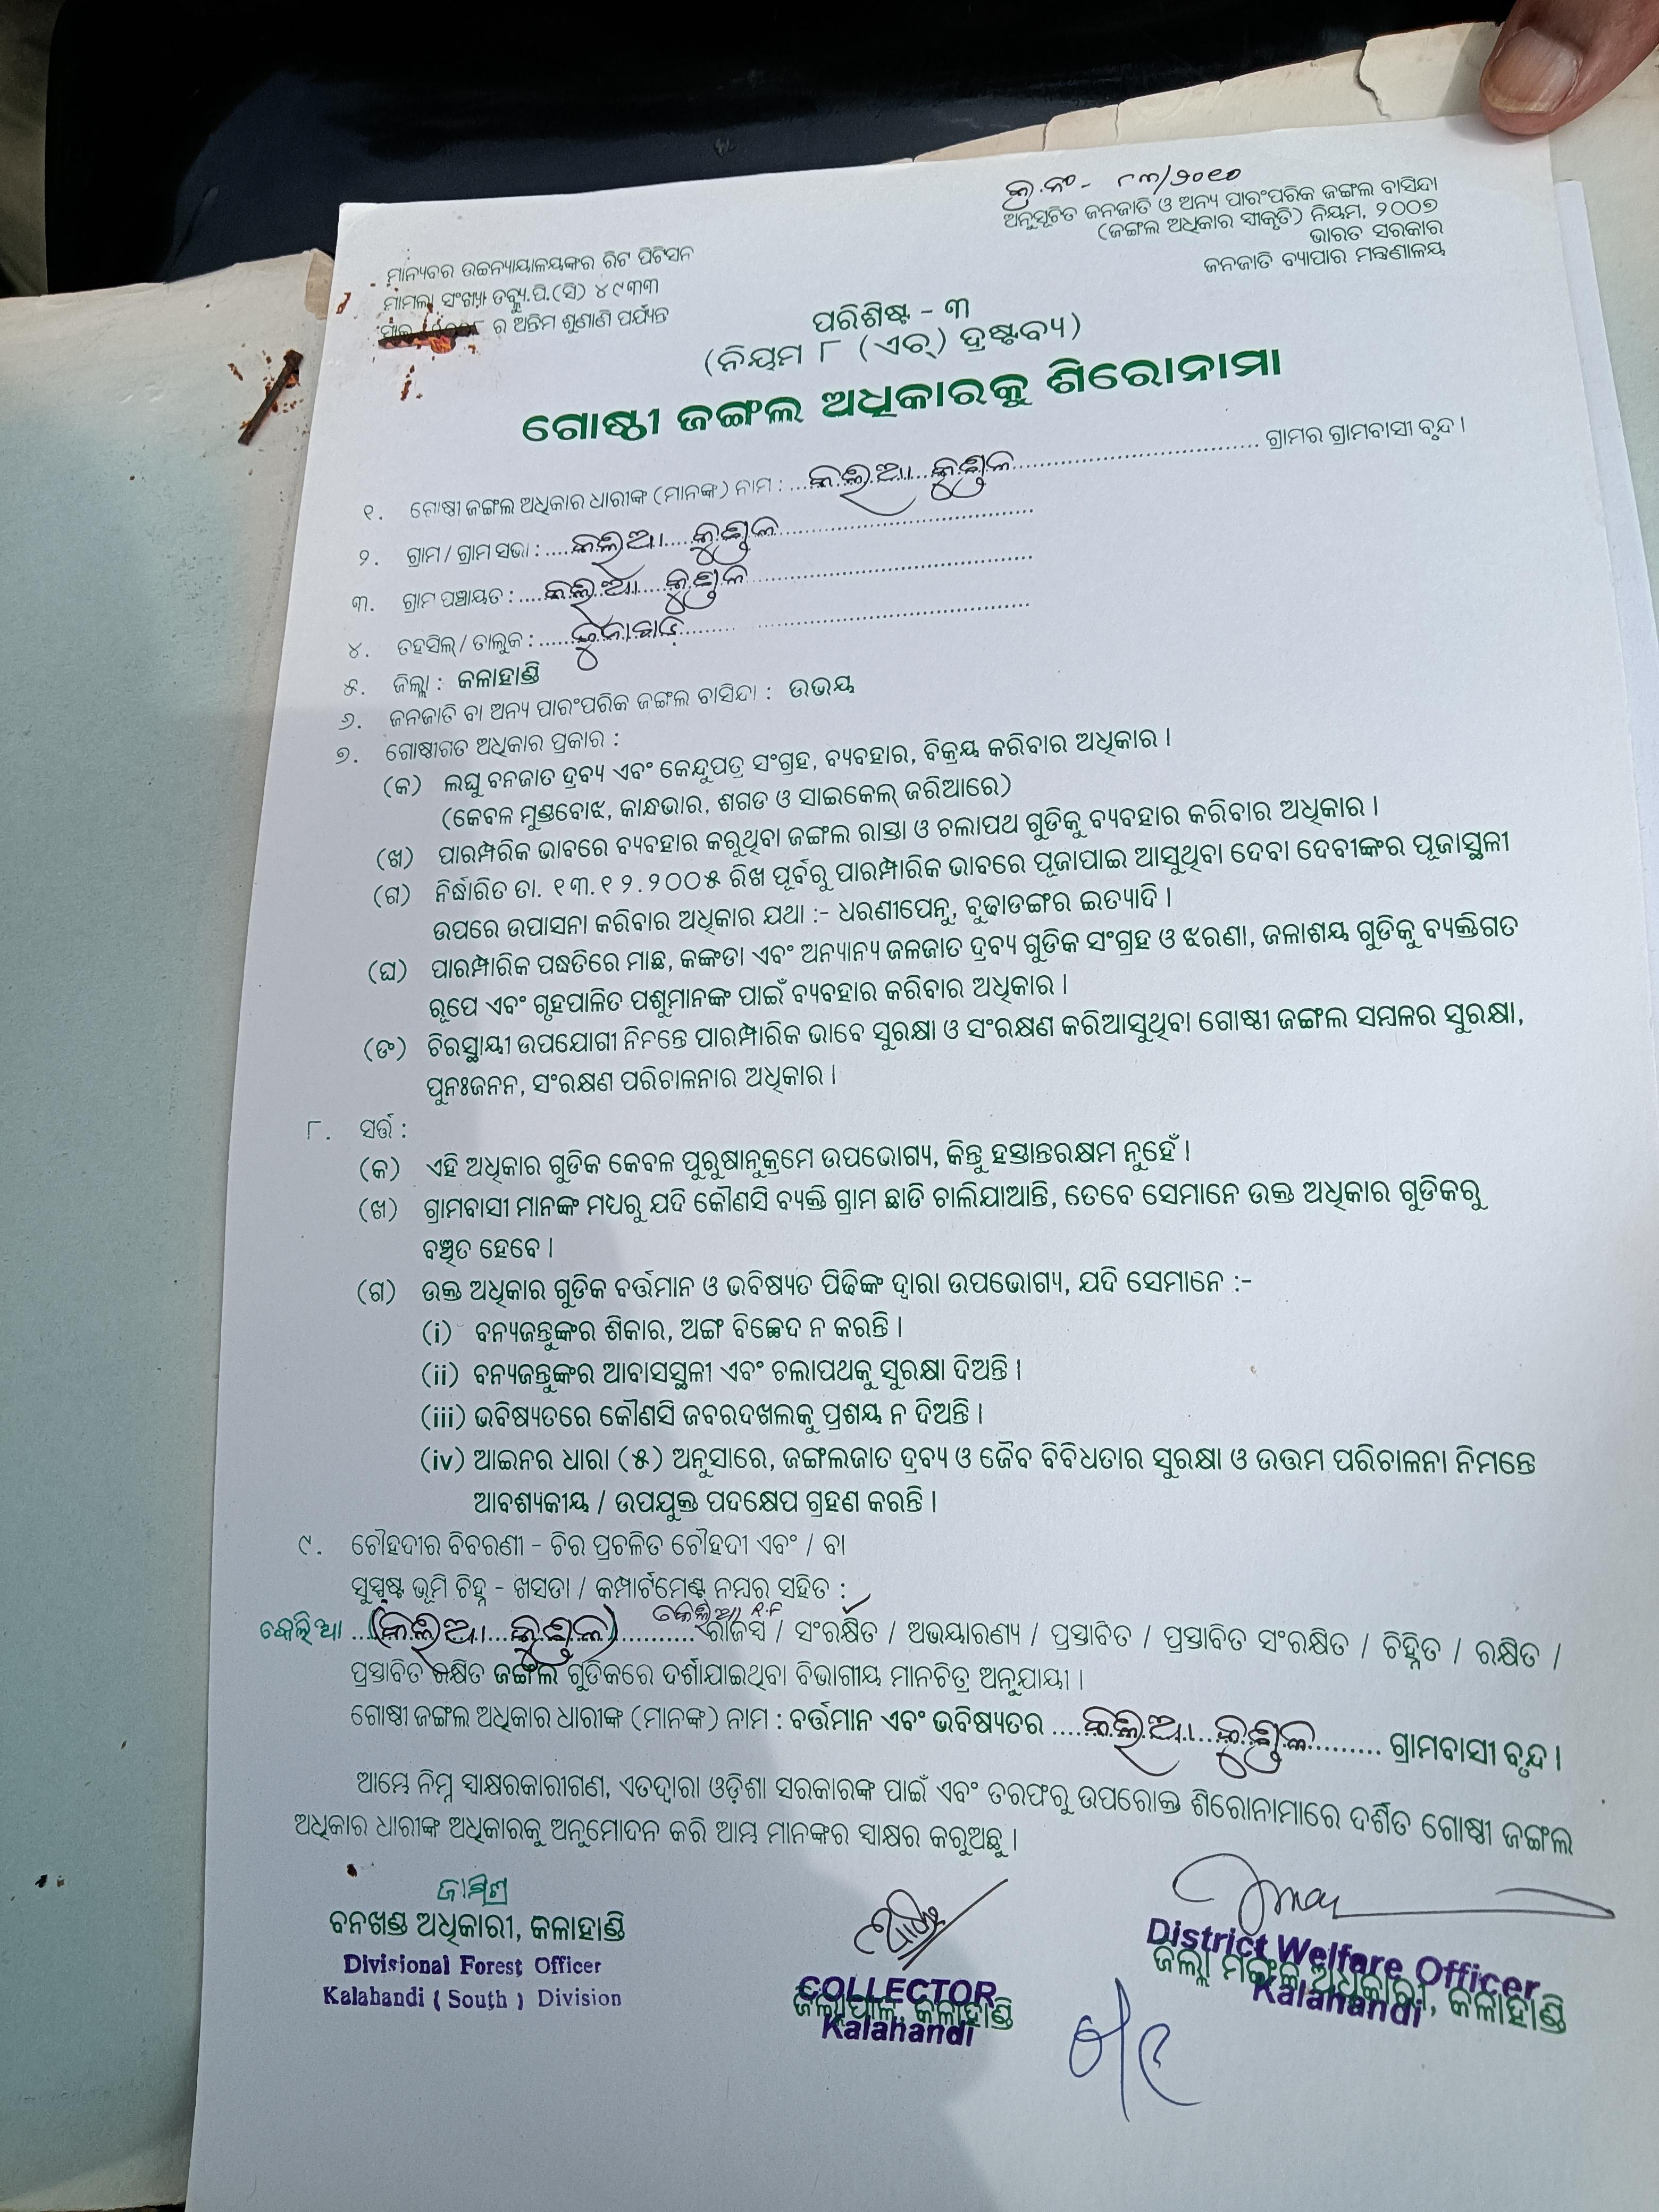 କ୍ର.ନଂ- ୮୩/୨୦୧୦
ଅନୁସୂଚିତ ଜନଜାତି ଓ ଅନ୍ୟ ପାରଂପରିକ ଜଙ୍ଗଲ ବାସିନ୍ଦା
(ଜଙ୍ଗଲ ଅଧିକାର ସ୍ୱୀକୃତି) ନିୟମ, ୨୦୦୭
ଭାରତ ସରକାର
ଜନଜାତି ବ୍ୟାପାର ମନ୍ତ୍ରଣାଳୟ
ମାନ୍ୟବର ଉଚ୍ଚନ୍ୟାୟାଳୟଙ୍କର ରିଟ ପିଟିସନ
ମାମଲା ସଂଖ୍ୟା ଡବ୍ଲ୍ୟୁ.ପି.(ସି) ୪୯୩୩
ର ଅନ୍ତିମ ଶୁଣାଣି ପର୍ଯ୍ୟନ୍ତ
ପରିଶିଷ୍ଟ - ୩
(ନିୟମ ୮ (ଏଚ୍) ଦ୍ରଷ୍ଟବ୍ୟ)
ଗୋଷ୍ଠୀ ଜଙ୍ଗଲ ଅଧିକାରକୁ ଶିରୋନାମା
୧. ଗୋଷ୍ଠୀ ଜଙ୍ଗଲ ଅଧିକାର ଧାରୀଙ୍କ (ମାନଙ୍କ) ନାମ : ... ଗ୍ରାମର ଗ୍ରାମବାସୀ ବୃନ୍ଦ ।
୨. ଗ୍ରାମ / ଗ୍ରାମ ସଭା :
୩. ଗ୍ରାମ ପଞ୍ଚାୟତ :
୪. ତହସିଲ୍ / ତାଲୁକ :
୫. ଜିଲ୍ଲା : କଳାହାଣ୍ଡି
୬. ଜନଜାତି ବା ଅନ୍ୟ ପାରଂପରିକ ଜଙ୍ଗଲ ବାସିନ୍ଦା : ଉଭୟ
୭. ଗୋଷ୍ଠୀଗତ ଅଧିକାର ପ୍ରକାର :
(କ) ଲଘୁ ବନଜାତ ଦ୍ରବ୍ୟ ଏବଂ କେନ୍ଦୁପତ୍ର ସଂଗ୍ରହ, ବ୍ୟବହାର, ବିକ୍ରୟ କରିବାର ଅଧିକାର ।
(କେବଳ ମୁଣ୍ଡବୋଝ, କାନ୍ଧଭାର, ଶଗଡ ଓ ସାଇକେଲ୍ ଜରିଆରେ)
(ଖ) ପାରମ୍ପରିକ ଭାବରେ ବ୍ୟବହାର କରୁଥିବା ଜଙ୍ଗଲ ରାସ୍ତା ଓ ଚଲାପଥ ଗୁଡିକୁ ବ୍ୟବହାର କରିବାର ଅଧିକାର ।
(ଗ) ନିର୍ଦ୍ଧାରିତ ତା. ୧୩.୧୨.୨୦୦୫ ରିଖ ପୂର୍ବରୁ ପାରମ୍ପାରିକ ଭାବରେ ପୂଜାପାଇ ଆସୁଥିବା ଦେବା ଦେବୀଙ୍କର ପୂଜାସ୍ଥଳୀ
ଉପରେ ଉପାସନା କରିବାର ଅଧିକାର ଯଥା :- ଧରଣୀପେନୁ, ବୁଢାଡଙ୍ଗର ଇତ୍ୟାଦି ।
(ଘ) ପାରମ୍ପାରିକ ପଦ୍ଧତିରେ ମାଛ, କଙ୍କଡା ଏବଂ ଅନ୍ୟାନ୍ୟ ଜଳଜାତ ଦ୍ରବ୍ୟ ଗୁଡିକ ସଂଗ୍ରହ ଓ ଝରଣା, ଜଳାଶୟ ଗୁଡିକୁ ବ୍ୟକ୍ତିଗତ
ରୂପେ ଏବଂ ଗୃହପାଳିତ ପଶୁମାନଙ୍କ ପାଇଁ ବ୍ୟବହାର କରିବାର ଅଧିକାର ।
(ଙ) ଚିରସ୍ଥାୟୀ ଉପଯୋଗୀ ନିମନ୍ତେ ପାରମ୍ପାରିକ ଭାବେ ସୁରକ୍ଷା ଓ ସଂରକ୍ଷଣ କରିଆସୁଥିବା ଗୋଷ୍ଠୀ ଜଙ୍ଗଲ ସମ୍ବଳର ସୁରକ୍ଷା,
ପୁନଃଜନନ, ସଂରକ୍ଷଣ ପରିଚାଳନାର ଅଧିକାର ।
୮. ସର୍ତ୍ତ :
(କ) ଏହି ଅଧିକାର ଗୁଡିକ କେବଳ ପୁରୁଷାନୁକ୍ରମେ ଉପଭୋଗ୍ୟ, କିନ୍ତୁ ହସ୍ତାନ୍ତରକ୍ଷମ ନୁହେଁ ।
(ଖ) ଗ୍ରାମବାସୀ ମାନଙ୍କ ମଧ୍ୟରୁ ଯଦି କୌଣସି ବ୍ୟକ୍ତି ଗ୍ରାମ ଛାଡି ଚାଲିଯାଆନ୍ତି, ତେବେ ସେମାନେ ଉକ୍ତ ଅଧିକାର ଗୁଡିକରୁ
ବଞ୍ଚିତ ହେବେ ।
(ଗ) ଉକ୍ତ ଅଧିକାର ଗୁଡିକ ବର୍ତ୍ତମାନ ଓ ଭବିଷ୍ୟତ ପିଢିଙ୍କ ଦ୍ୱାରା ଉପଭୋଗ୍ୟ, ଯଦି ସେମାନେ :-
(i) ବନ୍ୟଜନ୍ତୁଙ୍କର ଶିକାର, ଅଙ୍ଗ ବିଚ୍ଛେଦ ନ କରନ୍ତି ।
(ii) ବନ୍ୟଜନ୍ତୁଙ୍କର ଆବାସସ୍ଥଳୀ ଏବଂ ଚଲାପଥକୁ ସୁରକ୍ଷା ଦିଅନ୍ତି ।
(iii) ଭବିଷ୍ୟତରେ କୌଣସି ଜବରଦଖଲକୁ ପ୍ରଶୟ ନ ଦିଅନ୍ତି ।
(iv) ଆଇନର ଧାରା (୫) ଅନୁସାରେ, ଜଙ୍ଗଲଜାତ ଦ୍ରବ୍ୟ ଓ ଜୈବ ବିବିଧତାର ସୁରକ୍ଷା ଓ ଉତ୍ତମ ପରିଚାଳନା ନିମନ୍ତେ
ଆବଶ୍ୟକୀୟ / ଉପଯୁକ୍ତ ପଦକ୍ଷେପ ଗ୍ରହଣ କରନ୍ତି ।
୯. ଚୌହଦୀର ବିବରଣୀ - ଚିର ପ୍ରଚଳିତ ଚୌହଦୀ ଏବଂ / ବା
ସୁସ୍ପଷ୍ଟ ଭୂମି ଚିହ୍ନ - ଖସଡା / କମ୍ପାର୍ଟମେଣ୍ଟ ନମ୍ବର ସହିତ :
R.F
... ରାଜସ୍ୱ / ସଂରକ୍ଷିତ / ଅଭୟାରଣ୍ୟ / ପ୍ରସ୍ତାବିତ / ପ୍ରସ୍ତାବିତ ସଂରକ୍ଷିତ / ଚିହ୍ନିତ / ରକ୍ଷିତ /
ପ୍ରସ୍ତାବିତ ରକ୍ଷିତ ଜଙ୍ଗଲ ଗୁଡିକରେ ଦର୍ଶାଯାଇଥିବା ବିଭାଗୀୟ ମାନଚିତ୍ର ଅନୁଯାୟୀ ।
ଗୋଷ୍ଠୀ ଜଙ୍ଗଲ ଅଧିକାର ଧାରୀଙ୍କ (ମାନଙ୍କ) ନାମ : ବର୍ତ୍ତମାନ ଏବଂ ଭବିଷ୍ୟତର ... ଗ୍ରାମବାସୀ ବୃନ୍ଦ ।
ଆମ୍ଭେ ନିମ୍ନ ସ୍ୱାକ୍ଷରକାରୀଗଣ, ଏତଦ୍ୱାରା ଓଡ଼ିଶା ସରକାରଙ୍କ ପାଇଁ ଏବଂ ତରଫରୁ ଉପରୋକ୍ତ ଶିରୋନାମାରେ ଦର୍ଶିତ ଗୋଷ୍ଠୀ ଜଙ୍ଗଲ
ଅଧିକାର ଧାରୀଙ୍କ ଅଧିକାରକୁ ଅନୁମୋଦନ କରି ଆମ୍ଭ ମାନଙ୍କର ସ୍ୱାକ୍ଷର କରୁଅଛୁ ।
ବନଖଣ୍ଡ ଅଧିକାରୀ, କଳାହାଣ୍ଡି
Divisional Forest Officer
Kalahandi ( South ) Division
COLLECTOR
ଜିଲ୍ଲାପାଳ, କଳାହାଣ୍ଡି
Kalahandi
District Welfare Officer
ଜିଲ୍ଲା ମଙ୍ଗଳ ଅଧିକାରୀ, କଳାହାଣ୍ଡି
Kalahandi